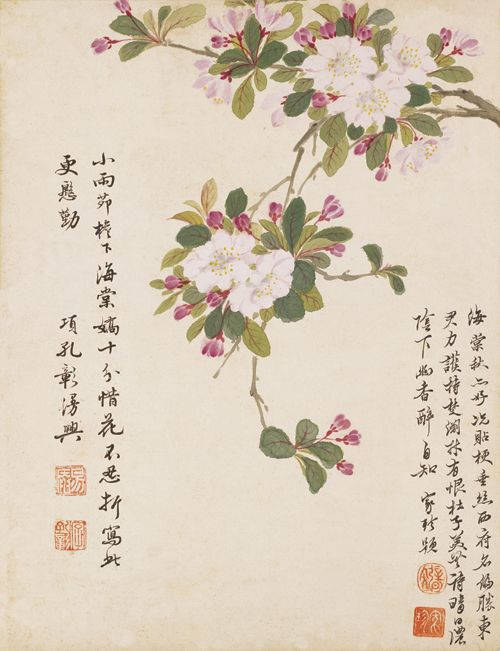 海棠好況貼梗垂絲西府名偏勝東
君力護持楚林有恨杜子美無詩晴日濃
陰下幽香醉自知 家珍題
小雨茆檐下海棠嬌十分惜花不忍折寫此
更慇勤 項孔彰漫興